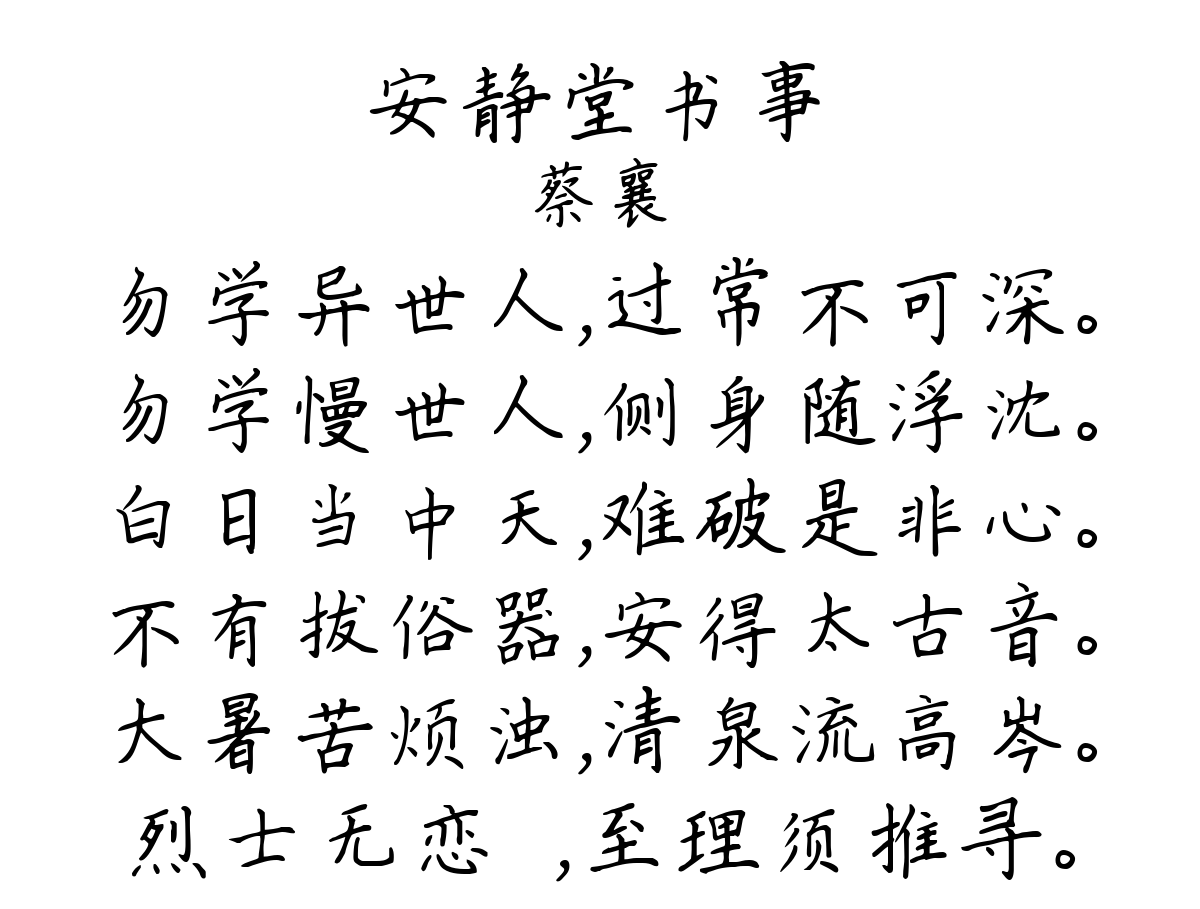 安静堂书事
蔡襄
勿学异世人,过常不可深。
勿学慢世人,侧身随浮沈。
白日当中天,难破是非心。
不有拔俗器,安得太古音。
大暑苦烦浊,清泉流高岑。
烈士无恋 ,至理须推寻。